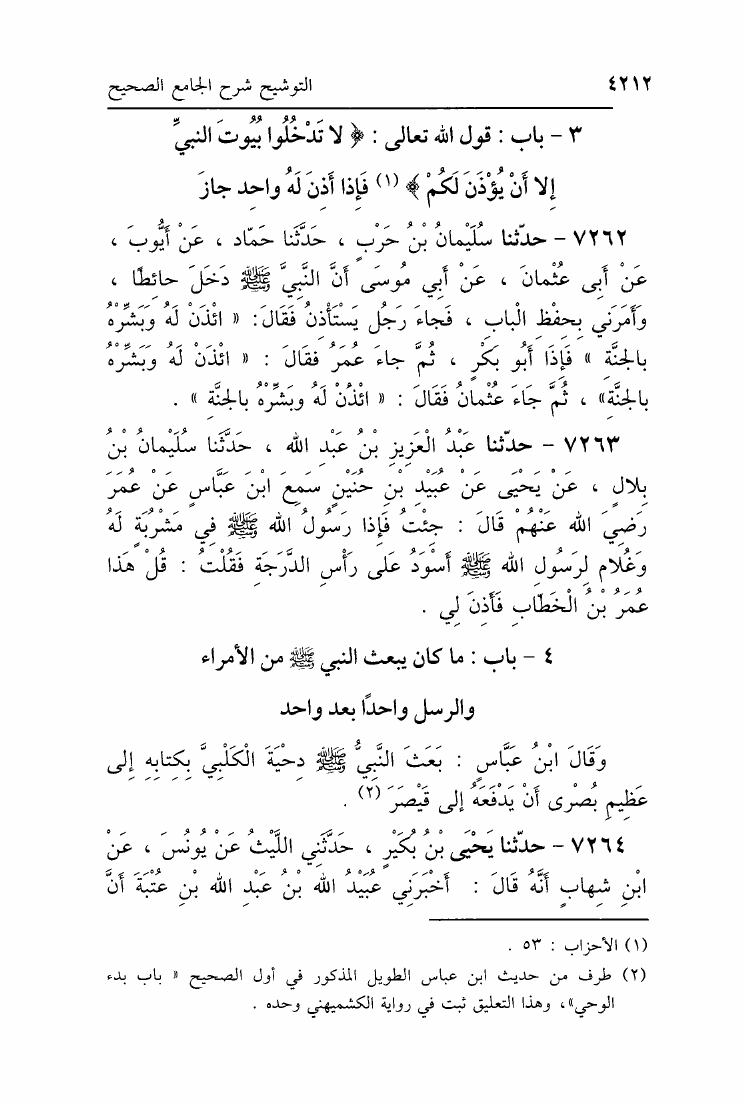 ٤٢١٢ التوشيح شرح الجامع الصحيح
٣ - باب : قول الله تعالى : ﴿ لا تَدْخُلُوا بُيُوتَ النبيِّ
إِلا أَنْ يُؤْذَنَ لَكُمْ ﴾ (١) فَإِذا أَذِنَ لَهُ واحِد جازَ
٧٢٦٢ - حدّثنا سُلَيْمانُ بْنُ حَرْبٍ ، حَدَّثَنا حَمّاد ، عَنْ أَيُّوبَ ،
عَنْ أَبى عُثْمانَ ، عَنْ أَبي مُوسَى أَنَّ النَّبِيَّ ﷺ دَخَلَ حائِطًا ،
وَأَمَرَني بِحِفْظِ الْبابِ ، فَجاءَ رَجُل يَسْتَأْذِنُ فَقَالَ: « ائْذَنْ لَهُ وَبَشِّرْهُ
بالجنَّةِ » فَإِذَا أَبُو بَكْرٍ ، ثُمَّ جاءَ عُمَرُ فقالَ : « ائْذَنْ لَه وَبَشِّرْهُ
بالجَنَّةِ» ، ثُمَّ جَاءَ عُثْمانُ فَقَالَ : « ائْذُنْ لَهُ وبَشِّرْهُ بالجنَّةِ » .
٧٢٦٣ - حدّثنا عَبْدُ الْعَزِيزِ بْنُ عَبْدِ الله ، حَدَّثَنا سُلَيْمانُ بْنُ
بِلالٍ ، عَنْ يَحْيَى عَنْ عُبَيْدِ بْنِ حُنَيْنٍ سَمِعَ ابْنَ عَبَّاسٍ عَنْ عُمَرَ
رَضِيَ الله عَنْهُمْ قَالَ : جِئْتُ فَإِذا رَسُولُ الله ﷺ فِي مَشْرُبَةٍ لَهُ
وَغُلَام لِرَسُولِ الله ﷺ أَسْوَدُ عَلى رَأْسِ الدَّرَجَةِ فَقُلْتُ : قُلْ هَذا
عُمَرُ بْنُ الْخَطّابِ فَأَذِنَ لِي .
٤ - باب : ما كان يبعث النبي ﷺ من الأمراء
والرسل واحدًا بعد واحد
وَقَالَ ابْنُ عَبَّاسٍ : بَعَثَ النَّبِيُّ ﷺ دِحْيَةَ الْكَلْبِيَّ بِكِتابِهِ إِلى
عَظِيمِ بُصْرى أَنْ يَدْفَعَهُ إِلى قَيْصَرَ (٢) .
٧٢٦٤ - حدّثنا يَحْيَى بْنُ بُكَيْرٍ ، حَدَّثَنِي اللَّيْثُ عَنْ يُونُسَ ، عَنْ
ابْنِ شِهابٍ أَنَّهُ قَالَ : أَخْبَرَنِي عُبَيْدُ الله بْنُ عَبْدِ الله بْنِ عُتْبَةَ أَنَّ
(١) الأحزاب : ٥٣ .
(٢) طرف من حديث ابن عباس الطويل المذكور في أول الصحيح « باب بدء
الوحي»، وهذا التعليق ثبت في رواية الكشميهني وحده .